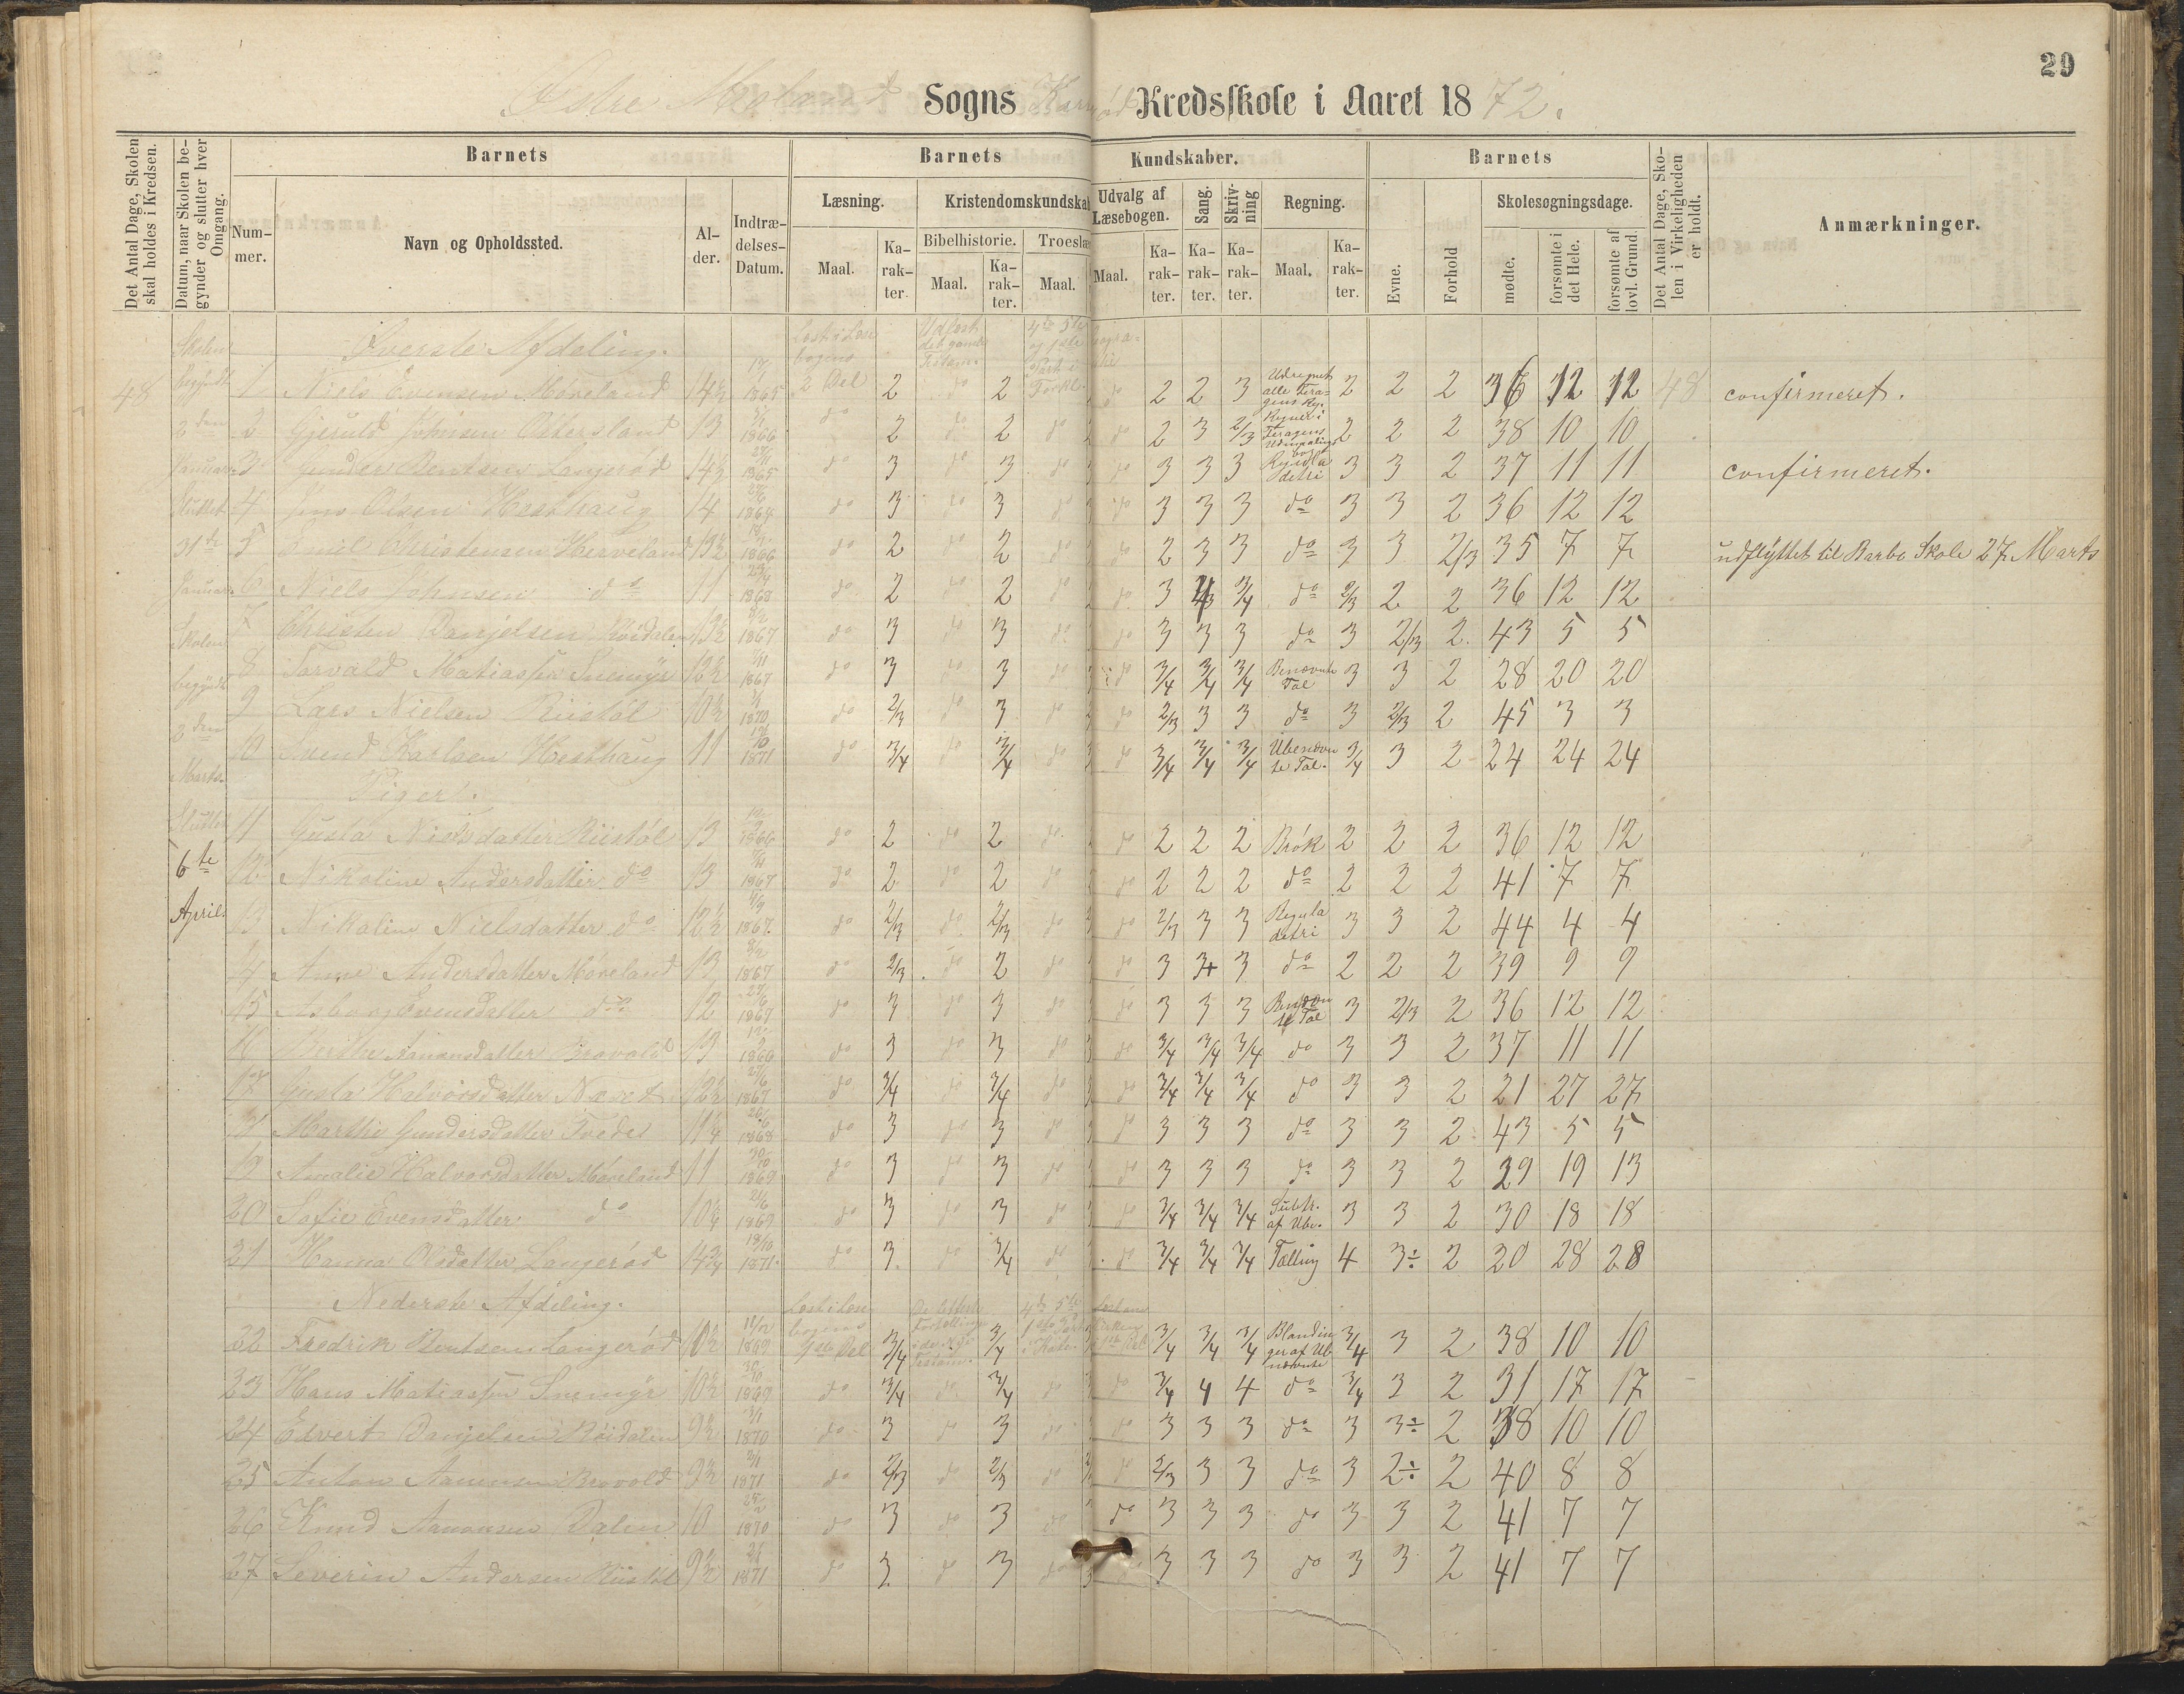 29
Østre Moland Sogns Kredsskole i Aaret 1872.
Det Antal Dage, Skolen skal holdes i Kredsen.
Datum, naar Skolen begynder og slutter hver Omgang.
Barnets
Barnets Kundskaber.
Barnets
Det Antal Dage, Skolen i Virkeligheden er holdt.
Anmærkninger.
Nummer.
Navn og Opholdssted.
Alder.
Indtrædelses-Datum.
Læsning.
Kristendomskundskab
Udvalg af Læsebogen.
Sang.
Skrivning
Regning.
Evne.
Forhold
Skolesøgningsdage.
Bibelhistorie.
Troeslæ
Maal.
Karakter.
Maal.
Karakter.
Maal.
Maal.
Karakter.
Karakter.
Karakter.
Maal.
Karakter.
mødte.
forsømte i det Hele.
forsømte af lovl. Grund.
Skolen begyndt 2den Januar. Sluttet 31te Januar. Skolen begyndt 3den Marts. Sluttet 6te April.
Øverste Afdeling.
48 1 Niels Evensen Møreland 14½ 1865 2 Del 2 do 2 Forkl. do 2 2 3 Udregnet alle 2 2 2 36 12 12 48 confirmeret.
2 Gjeruld Johnsen Østersland 13 1866 do 2 do 2 do do 2 3 2/3 Regner i 2 2 2 38 10 10
3 Gunder Bentsen Langerød 14½ 1865 do 3 do 3 do do 3 3 3 Regula detri 3 3 2 37 11 11 confirmeret.
4 Jens Olsen Hesthaug 14 1864 do 3 do 3 do do 3 3 3 do 3 3 2 36 12 12
5 Emil Christensen Herveland 13½ 1866 do 2 do 2 do do 2 3 3 do 3 3 2/3 35 7 7 udflyttet til Barbo Skole 27 Marts
6 Niels Johnsen do 11 1868 do 2 do 2 do do 3 3/4 do 2/3 2 2 36 12 12
7 Christen Danjelsen Röidalen 13½ 1867 do 3 do 3 do do 3 3 3 do 3 2/3 2 43 5 5
8 Torvald Matiassen Snemyr 12½ 1867 do 3 do 3 do do 3/4 3/4 3/4 Benævnte Tal 3 3 2 28 20 20
9 Lars Nielsen Riistöl 10½ 1870 do 2/3 do 3 do do 2/3 3 3 do 3 2/3 2 45 3 3
10 Svend Karlsen Hesthaug 11 1871 do 3/4 do 3/4 do do 3/4 3/4 3/4 Ubenævnte Tal. 3/4 3 2 24 24 24
Piger.
11 Gusta Nielsdatter Riistöl 13 1866 do 2 do 2 do do 2 2 2 Brök 2 2 2 36 12 12
12 Nikoline Andersdatter do 13 1867 do 2 do 2 do do 2 2 2 do 2 2 2 41 7 7
13 Nikoline Nielsdatter do 12½ 1867 do 2/3 do 2/3 do do 2/3 3 3 Regula detri 3 3 2 44 4 4
14 Anne Andersdatter Møreland 13 1867 do 2/3 do 2 do do 3 3+ 3 do 2 2 2 39 9 9
15 Asborg Evensdatter do 12 1867 do 3 do 3 do do 3 3 3 Benævnte Tal 3 2/3 2 36 12 12
16 Berthe Aanonsdatter Brovold 13 1866 do 3 do 3 do do 3/4 3/4 3/4 do 3 3 2 37 11 11
17 Gusta Halvorsdatter Næset 12½ 1867 do 3/4 do 3/4 do do 3/4 3/4 3/4 do 3 3 2 21 27 27
18 Marthe Gundersdatter Tvedet 11¼ 1868 do 3 do 3 do do 3 3 3 do 3 3 2 43 5 5
19 Amalie Halvorsdatter Møreland 11 1869 do 3 do 3 do do 3 3 3 do 3 3 2 29 19 13
20 Sofie Evensdatter do 10¼ 1869 do 3 do 3 do do 3/4 3/4 3/4 Subtr. af Ube. 3 3 2 30 18 18
21 Hanna Olsdatter Langerød 1871 do 3 do 3/4 do do 3/4 3/4 3/4 Tælling 4 3÷ 2 20 28 28
Nederste Afdeling.
22 Fredrik Bentsen Langerød 10½ 1869 1ste Del 3/4 3/4 3/4 3/4 3/4 Blandinger af Ubenævnte 3/4 3 2 38 10 10
23 Hans Matiassen Snemyr 10½ 1869 do 3/4 do 3/4 do do 3/4 4 4 do 3/4 3 2 31 17 17
24 Edvert Danjelsen Röidalen 9½ 1870 do 3 do 3 do do 3 3 3 do 3 3÷ 2 38 10 10
25 Anton Aanonsen Brovold 9½ 1871 do 2/3 do 2/3 do do 2/3 3 3 do 3 2÷ 2 40 8 8
26 Knud Aanonsen Dalen 10 1870 do 3 do 3 do do 3 3 3 do 3 3 2 41 7 7
27 Severin Andersen Riistöl 9½ 1871 do 3 do 3 do 3 3 3 do 3 3 2 41 7 7